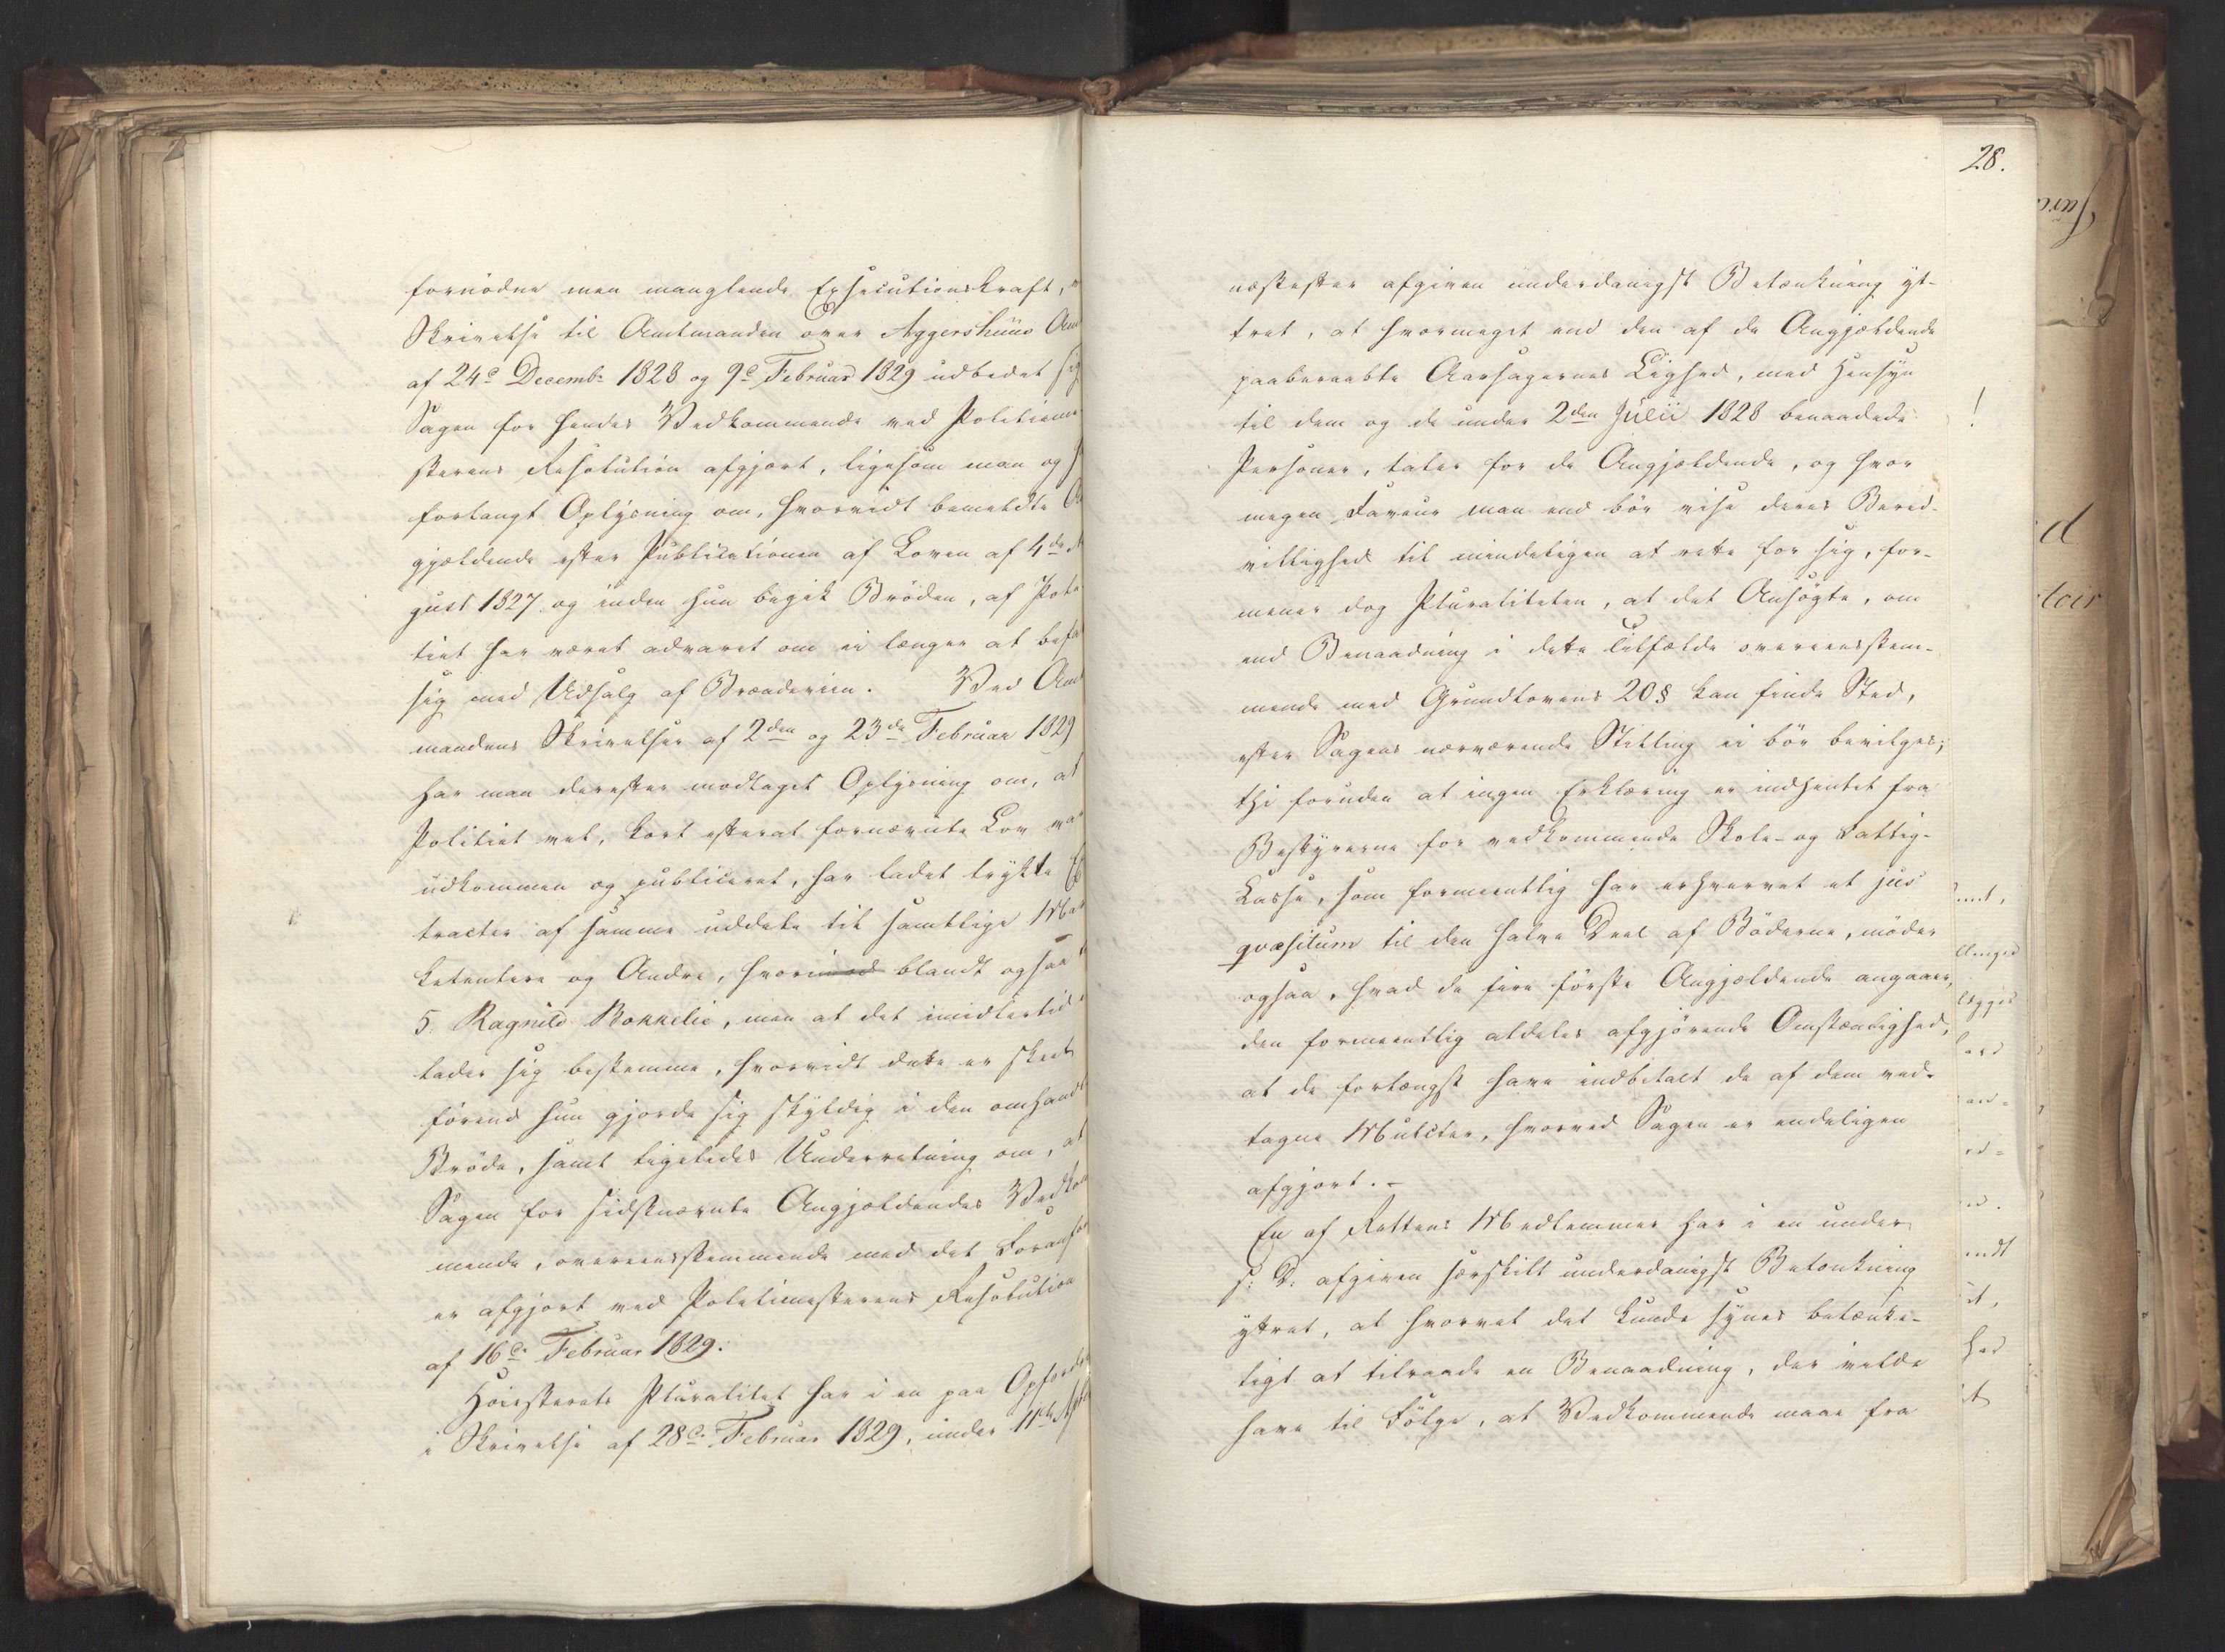 fornödne men manglende Exsecutionskraft,
Skrivelse til Amtmanden over Aggershuus Am
af 24de Decembr 1828 og 9de Februar 1829 udbedet sig
Sagen for hendes Vedkommende ved Politieme
sterens Resolution afgjort, ligesom man og
forlangt Oplysning om, hvorvidt bemeldte
gjældende efter Publicationen af Loven af 4de
gust 1827 og inden hun begik Bröden, af Poli
tiet har været advaret om ei længer at befa
sig med Udsalg af Brændeviin. Ved Amt
mandens Skrivelser af 2den og 23de Februar 1829
har man derefter modtaget Oplysning om, at
Politiet vel, kort efterat fornævnte Lov var
udkommen og publiceret, har ladet trykte Ex
tracter af samme uddele til samtlige Mar
ketentere og Andre, hvoriimod blandt ogsaa
5. Ragnild Bokkelie, men at det imidlertid
lader sig bestemme, hvorvidt dette er skeet
förend hun gjorde sig skyldig i den omhand
Bröde, samt ligeledes Underretning om, at
Sagen for sidstnævnte Angjældendes Vedkom
mende, overeensstemmende med det Foranfør
er afgjort ved Politiemesterens Resolution
af 16de Februar 1829.
Höiesterets Pluralitet har i en paa Opfordr
i Skrivelse af 28de Februar 1829, under 11te
28.
næstefter afgiven underdanigst Betænkning yt-
tret, at hvormeget end den af de Angjældende
paaberaabte Aarsagernes Lighed, med Hensyn
til dem og de under 2den Julii 1828 benaadede
!
Personer, taler for de Angjældende, og hvor
megen Faveur man end bör vise deres Bered-
villighed til mindeligen at rette for sig, for-
mener dog Pluraliteten, at det Ansögte, om
end Benaadning i dette Tilfælde overeensstem-
mende med Grundlovens 20 § kan finde Sted,
efter Sagens nærværende Stilling ei bör bevilges;
thi foruden at ingen Erklæring er indhentet fra
Bestyrerne for vedkommende Skole- og Fattig-
Casse, som formeentlig har erhvervet et jus
qvæsitum til den halve Deel af Böderne, möder
ogsaa, hvad de fire förste Angjældende angaaer,
den formeentlig aldeles afgjörende Omstændighed,
at de forlængst have indbetalt de af dem ved-
tagne Mulcter, hvorved Sagen er endeligen
afgjort. -
En af Rettens Medlemmer har i en under
s: D: afgiven særskilt underdanigst Betænkning
yttret, at hvorvel det kunde synes betænke-
ligt at tilraade en Benaadning, der vilde
have til Fölge, at Vedkommende maae fra